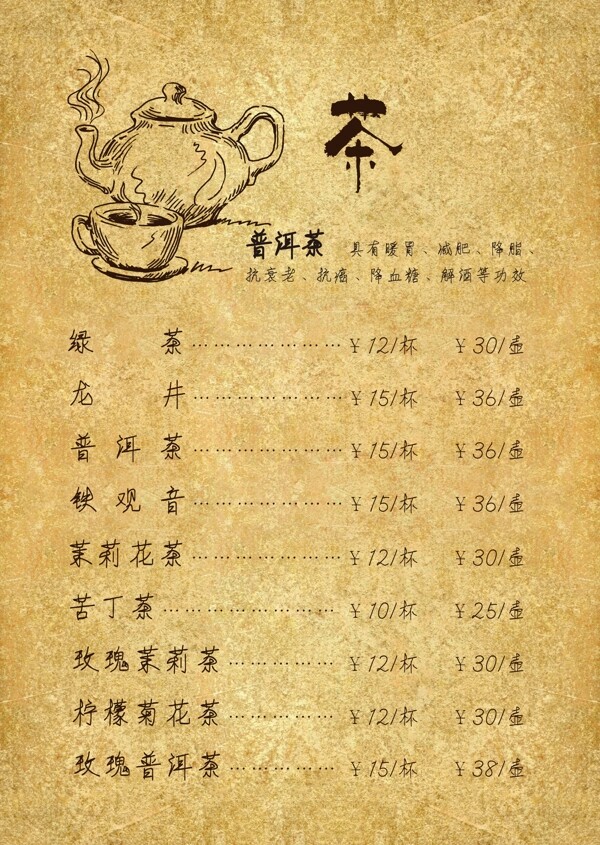 茶
普洱茶 具有暖胃、减肥、降脂、
抗衰老、抗癌、降血糖、解酒等功效
绿茶……………………￥12/杯 ￥30/壶
龙井……………………￥15/杯 ￥36/壶
普洱茶……………………￥15/杯 ￥36/壶
铁观音……………………￥15/杯 ￥36/壶
茉莉花茶……………………￥12/杯 ￥30/壶
苦丁茶………………………￥10/杯 ￥25/壶
玫瑰茉莉茶………………￥12/杯 ￥30/壶
柠檬菊花茶………………￥12/杯 ￥30/壶
玫瑰普洱茶………………￥15/杯 ￥38/壶